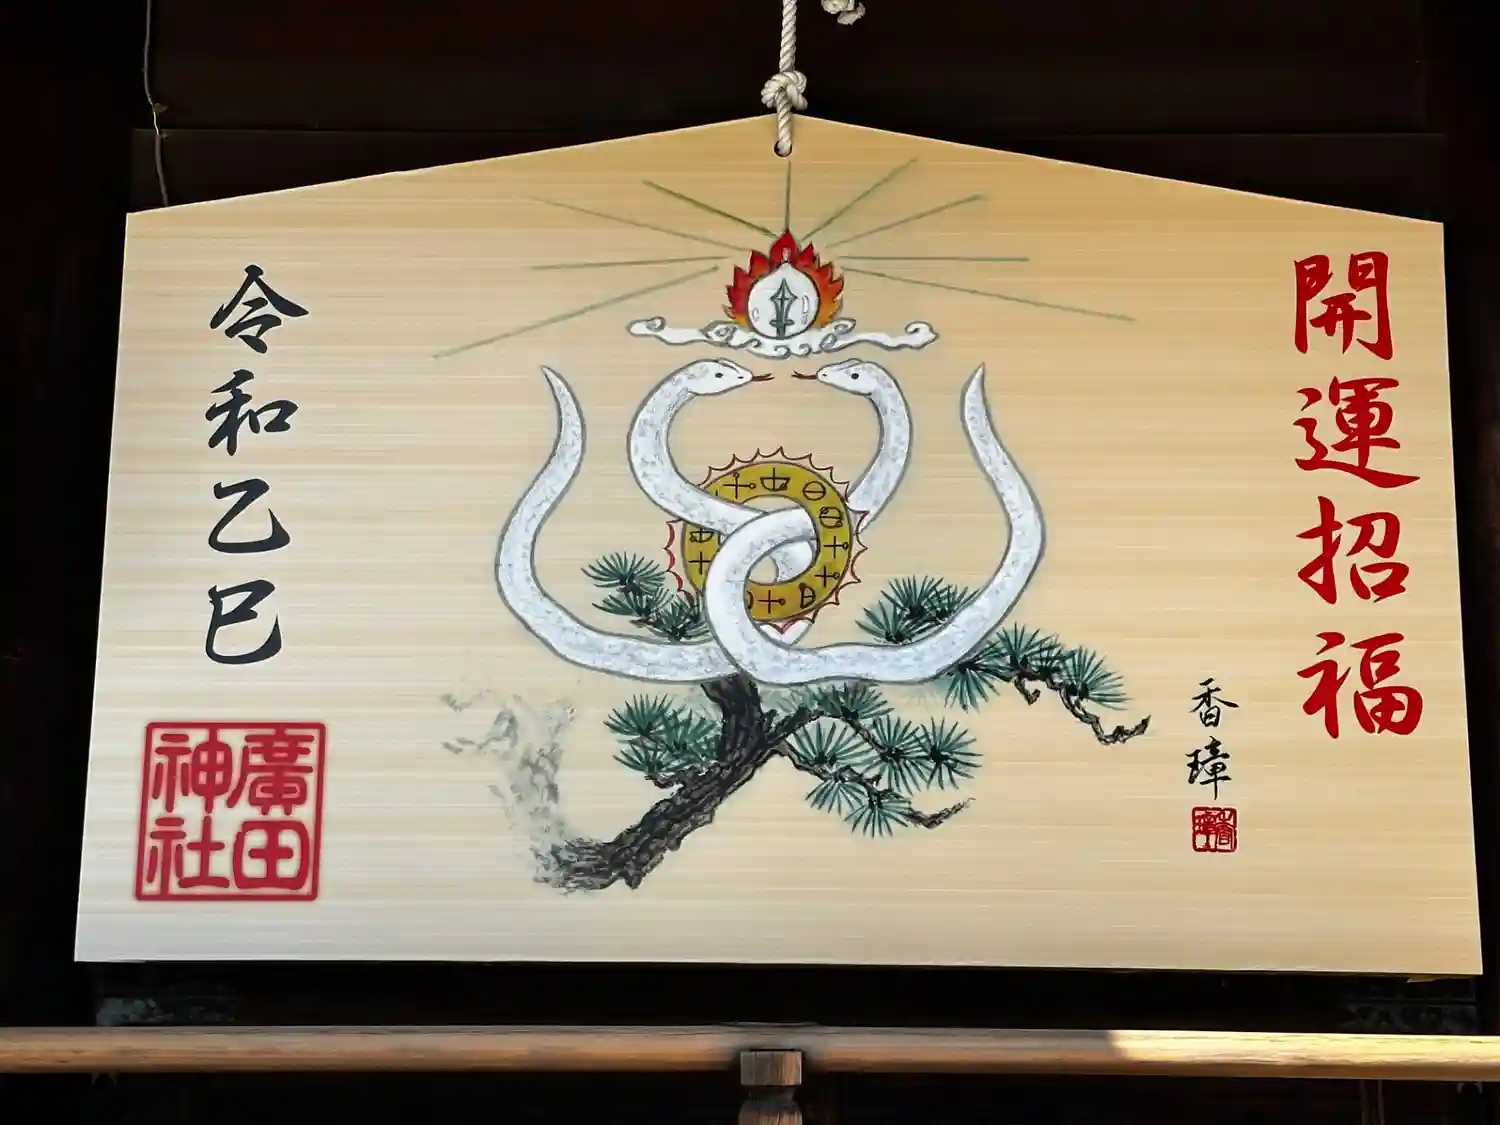 開運招福
香璋
令和乙巳
廣田
神社